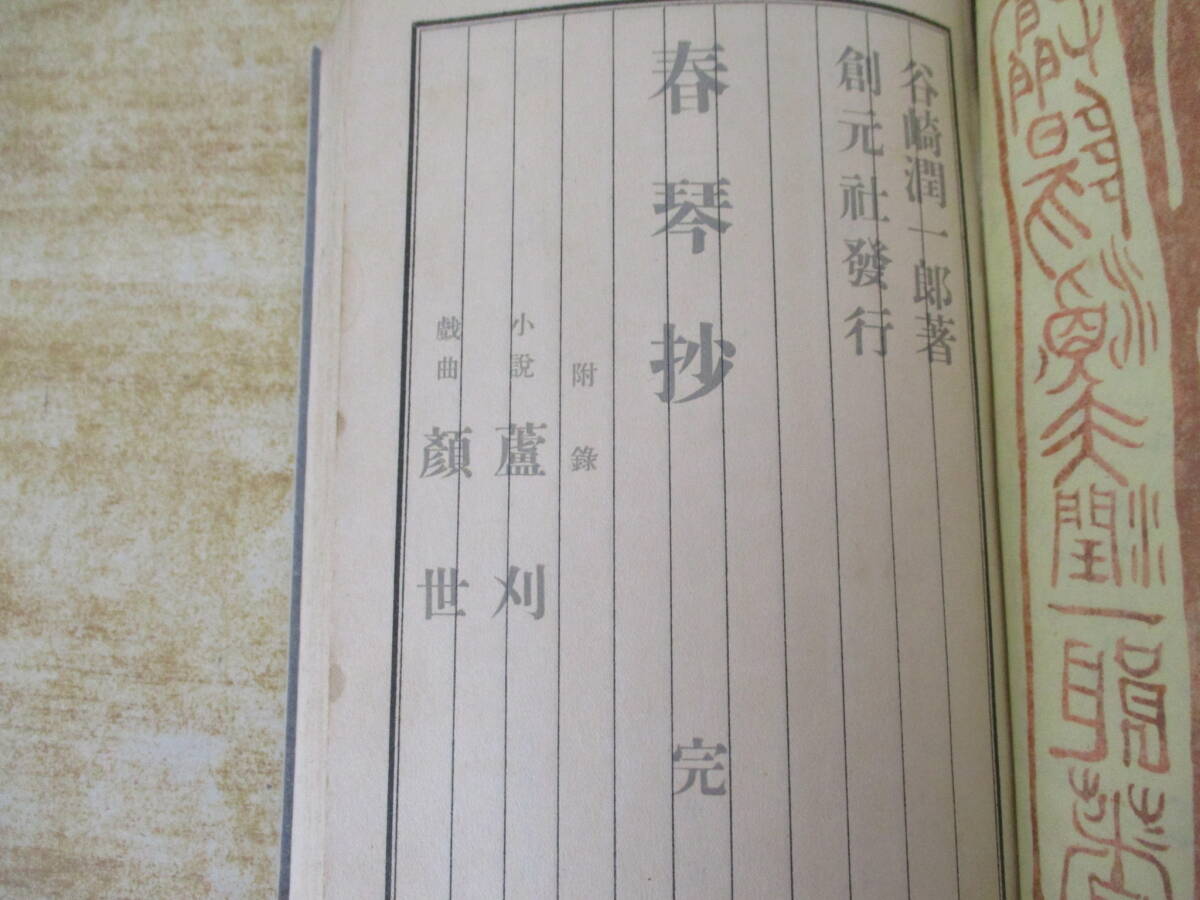 谷崎潤一郎著
創元社發行
春琴抄 完
附錄
小說 蘆刈
戲曲 顏世